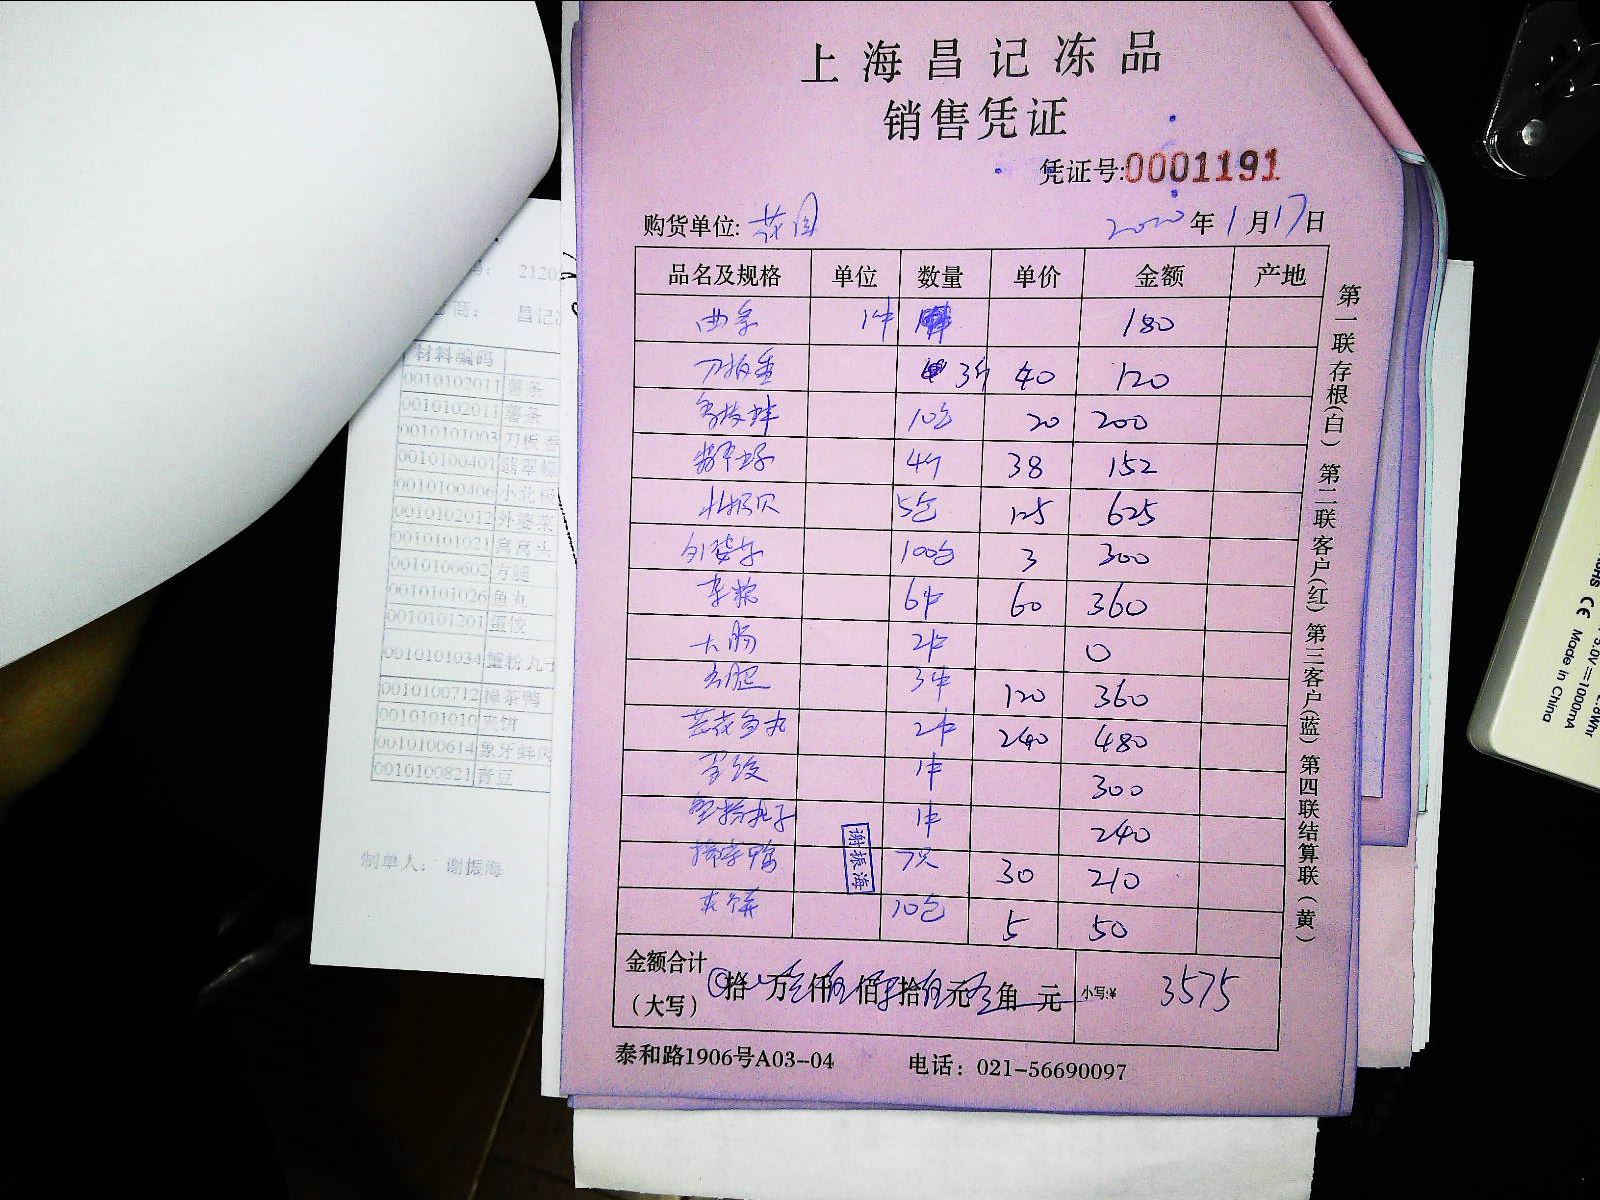 上海昌记冻品
销售凭证
凭证号:0001191
购货单位: 花园 2020年1月17日
品名及规格 单位 数量 单价 金额 产地
1件 180
刀板香 3件 40 120
10包 20 200
4个 38 152
北极贝 5包 125 625
外婆菜 100包 3 300
杂粮 6件 60 360
大肠 2件 0
方腿 3件 120 360
鱼丸 2件 240 480
蛋饺 1件 300
蟹粉丸子 1件 240
樟茶鸭 7只 30 210
夹饼 10包 5 50
谢振海
金额合计
(大写) 拾 万 仟 佰 拾 元 角 元 小写:¥ 3575
泰和路1906号A03-04 电话: 021-56690097
第一联存根(白) 第二联客户(红) 第三客户(蓝) 第四联结算联(黄)
商: 昌记
材料编码
0010102011 薯条
0010102011 薯条
0010101003 刀板香
0010100401 翡翠
0010100406 小北
0010102012 外婆菜
0010101021 窝窝头
0010100602 方腿
0010101026 鱼丸
0010101201 蛋饺
0010101034 蟹粉丸子
0010100712 樟茶鸭
0010101010 夹饼
0010100614 象牙蚌肉
0010100821 青豆
制单人: 谢振海
CE Made in China